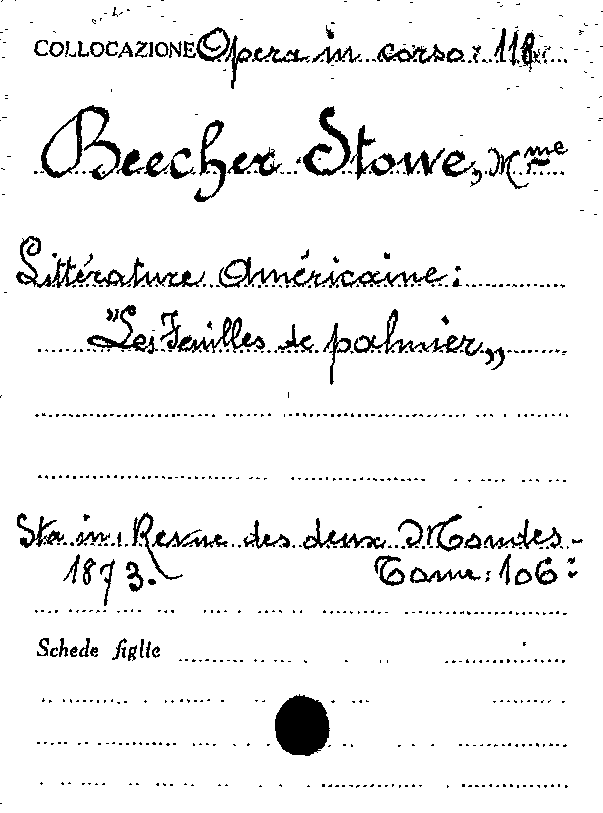 COLLOCAZIONE Opera in corso: 118
Beecher Stowe, Mme
Littérature Américaine:
"Les Feuilles de palmier„
Sta in: Revue des deux Mondes-
1873. Tome: 106:
Schede figlie